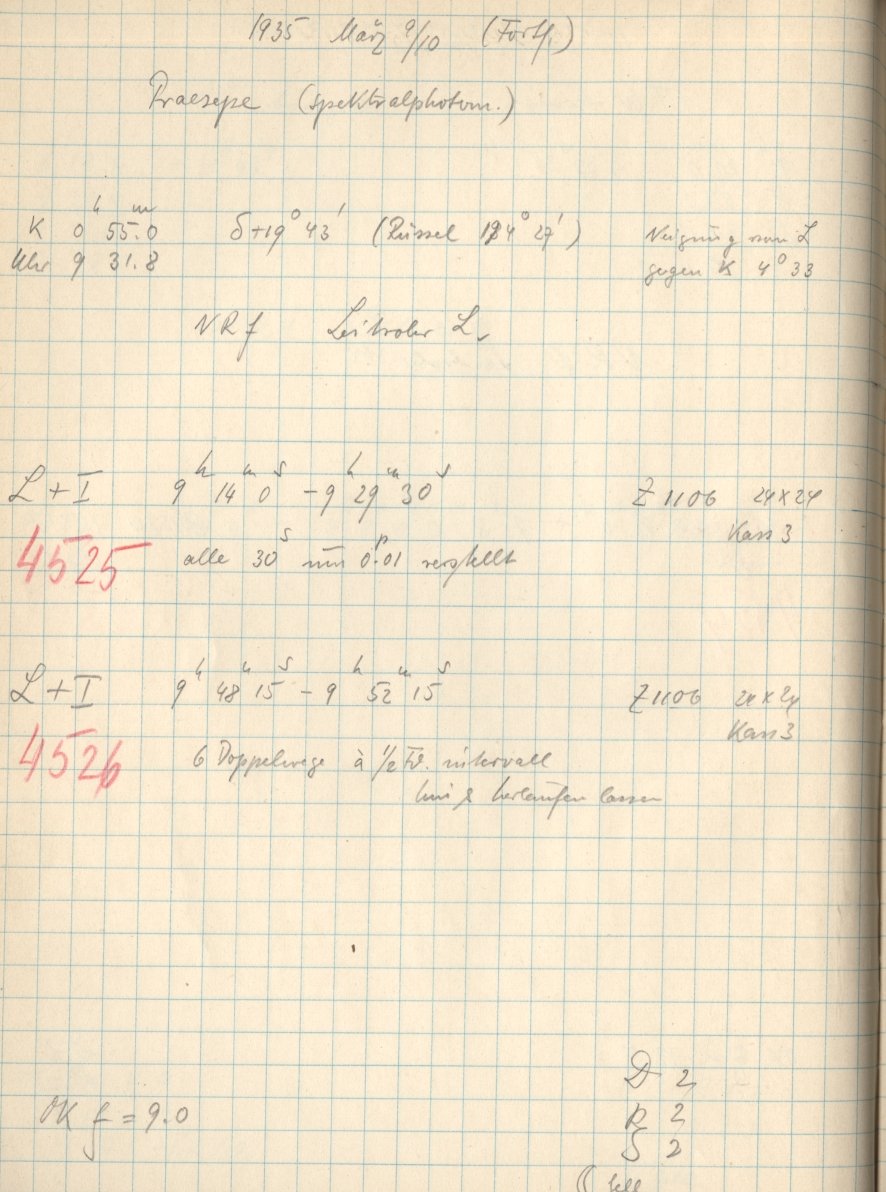 1935 März 9/10 (Forts.)
Praesepe (spektralphotom.)
K 0ʰ 55ᵐ.0 δ+19° 43' (Rüssel 194° 27') Neigung von L
Uhr 9 31.8 gegen K 4° 33
NRf Leitrohr L.
L + I 9ʰ 14ᵐ 0ˢ – 9ʰ 29ᵐ 30ˢ Z 1106 24x24
Kass 3
4525 alle 30ˢ um 0ᵖ.01 verstellt
L + I 9ʰ 48ᵐ 15ˢ – 9ʰ 52ᵐ 15ˢ Z 1106 24x24
Kass 3
4526 6 Doppelwege à 1/2 Fd. intervall
hin & herlaufen lassen
D 2
OK f = 9.0 R 2
S 2
( hell